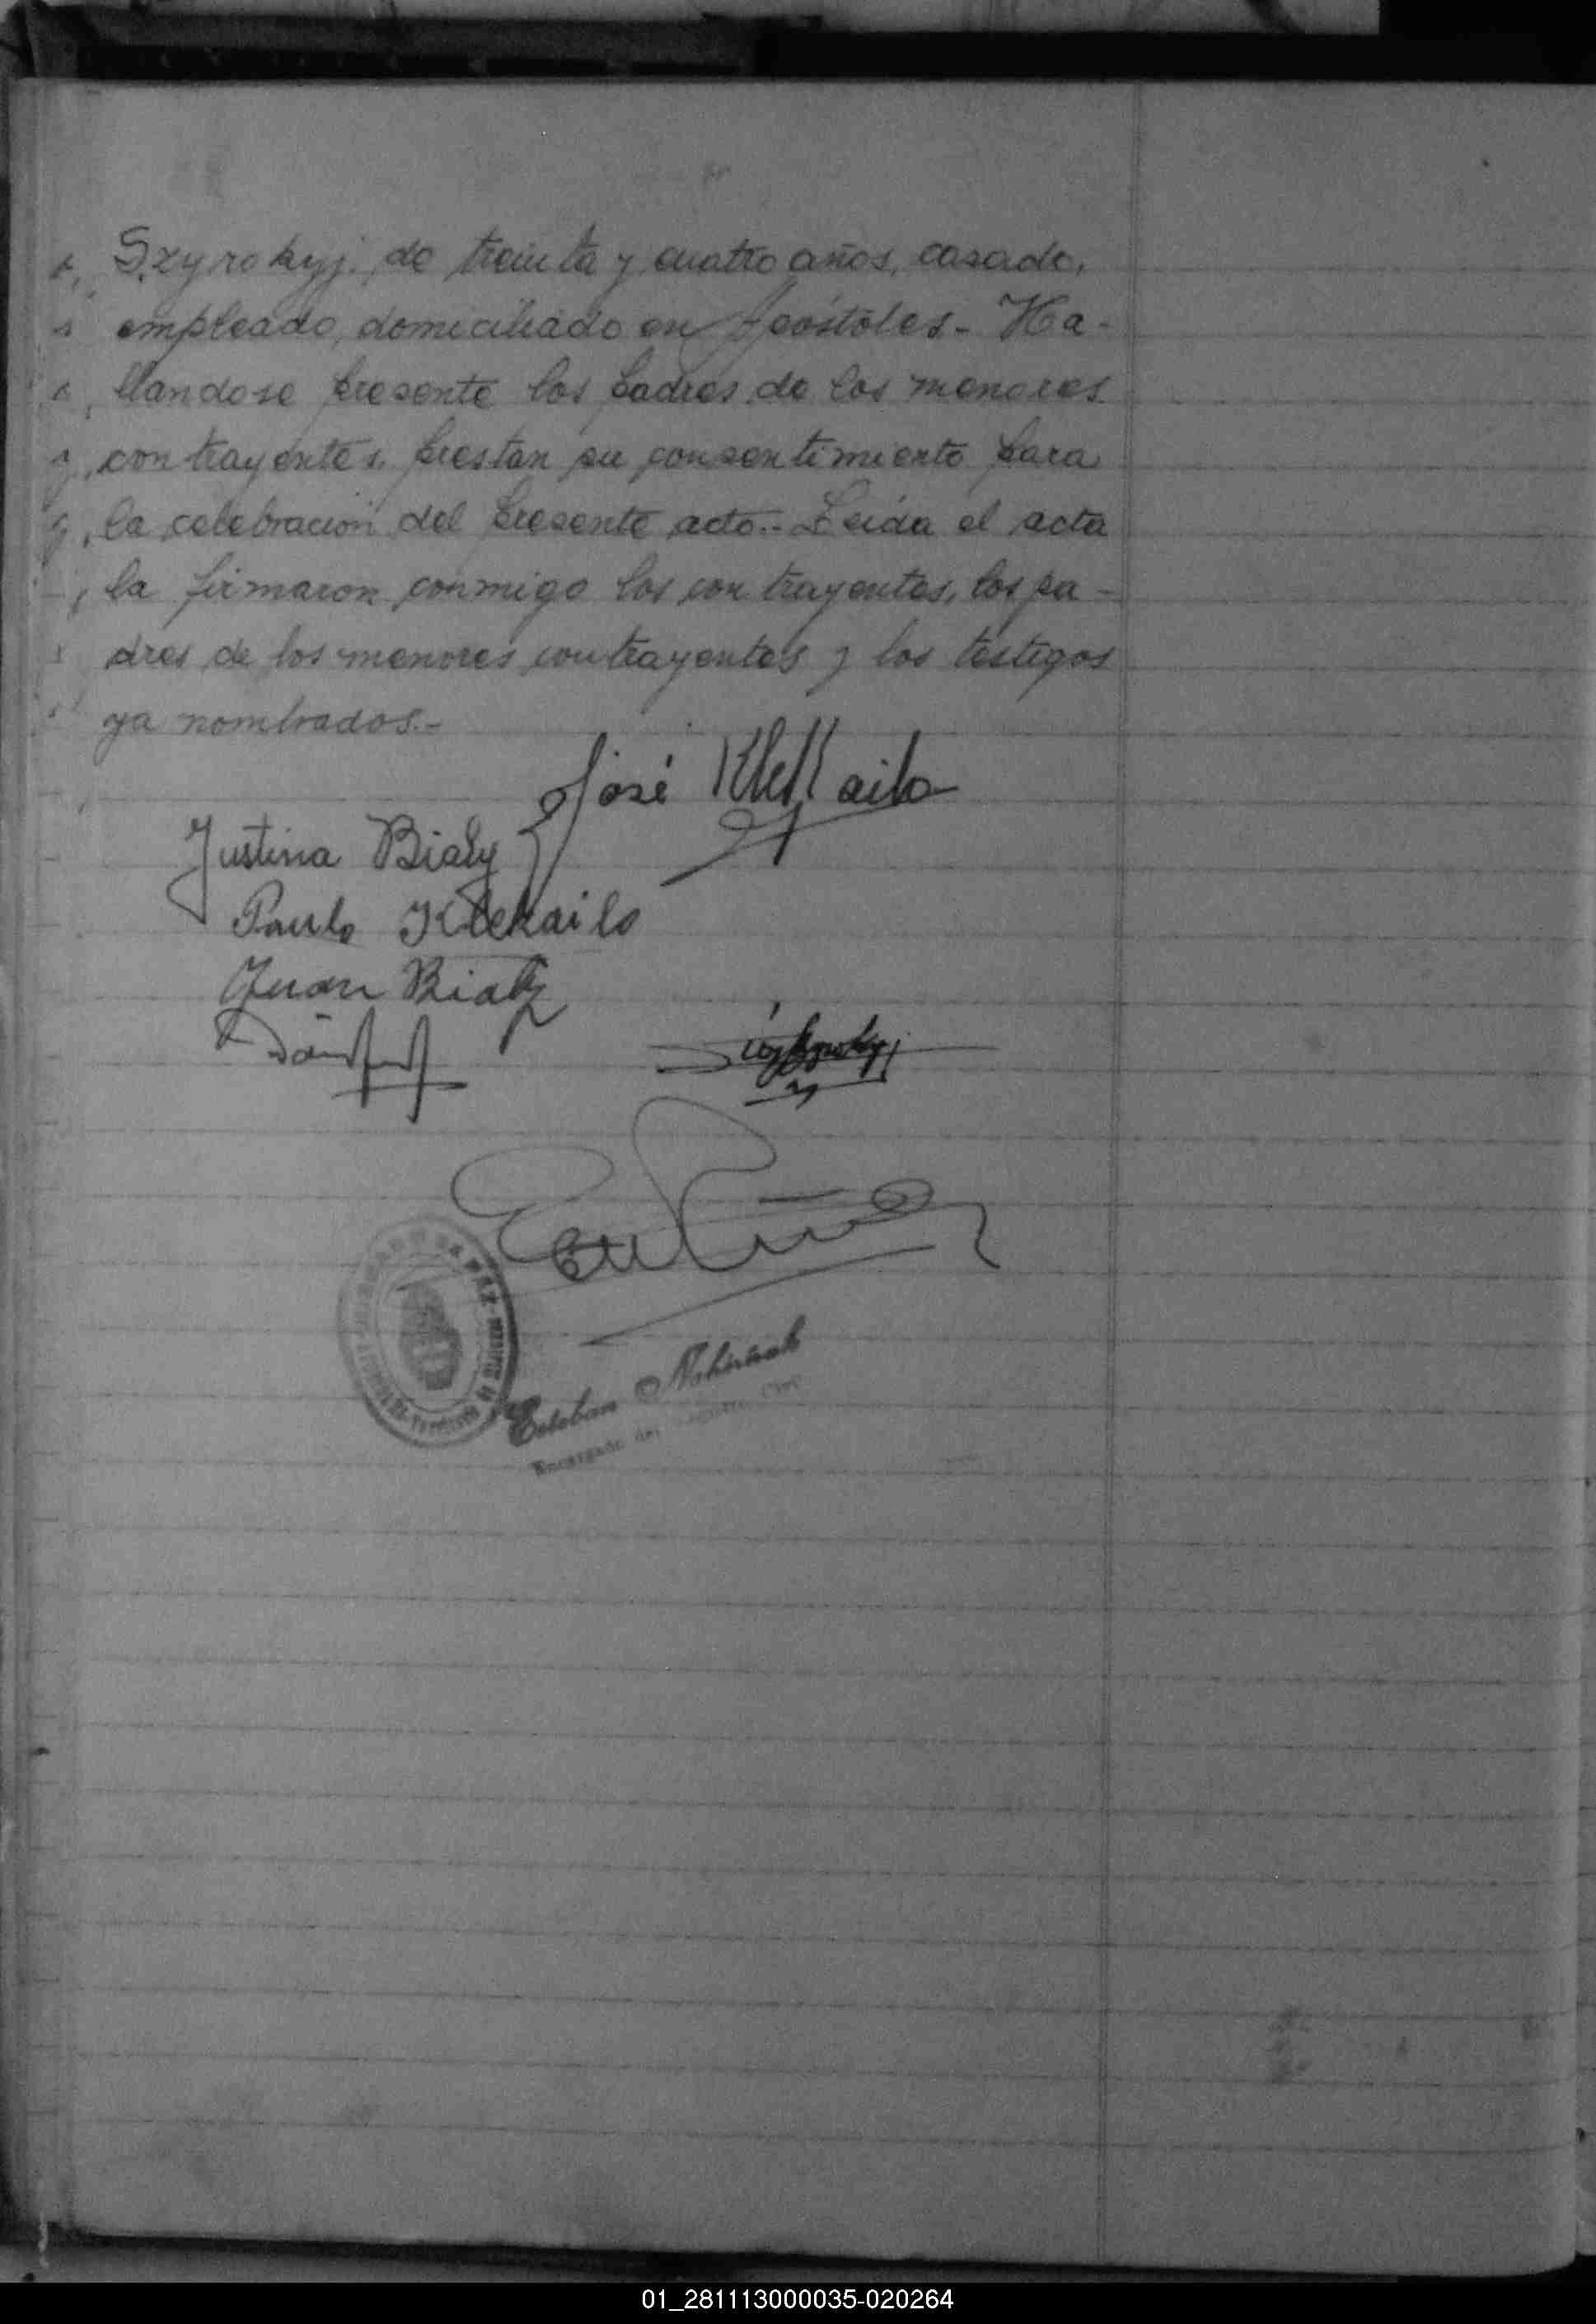 Szyrokyj, de treinta y cuatro años, casado,
empleado, domiciliado en Apóstoles.- Ha-
llandose presente los padres de los menores
contrayentes prestan su consentimiento para
la celebración del presente acto.- Leída el acta
la firmaron conmigo los contrayentes, los pa-
dres de los menores contrayentes y los testigos
ya nombrados.-
José Klekailo
Justina Bialy
Paulo Klekailo
Juan Bialy
Esteban
Encargado del Registro Civil
01_281113000035-020264